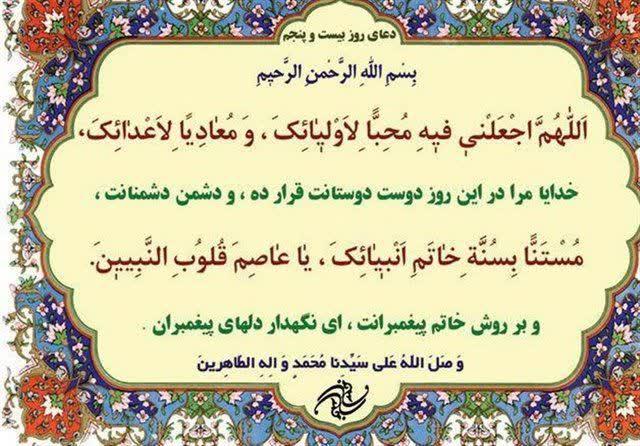 دعای روز بیست و پنجم
بِسْمِ اللهِ الرَّحْمنِ الرَّحیمِ
اَللّٰهُمَّ اجْعَلْنی فیهِ مُحِبًّا لِاَوْلیٰائِکَ، وَ مُعٰادِیًا لِاَعْدٰائِکَ،
خدایا مرا در این روز دوست دوستانت قرار ده ، و دشمن دشمنانت ،
مُسْتَنًّا بِسُنَّةِ خٰاتَمِ اَنْبیٰائِکَ ، یٰا عٰاصِمَ قُلُوبِ النَّبِیینَ.
و بر روش خاتم پیغمبرانت ، ای نگهدار دلهای پیغمبران .
وَ صَلَ اللهُ عَلی سَیِّدِنا مُحَمَدٍ وَ الِهِ الطّاهِرینَ